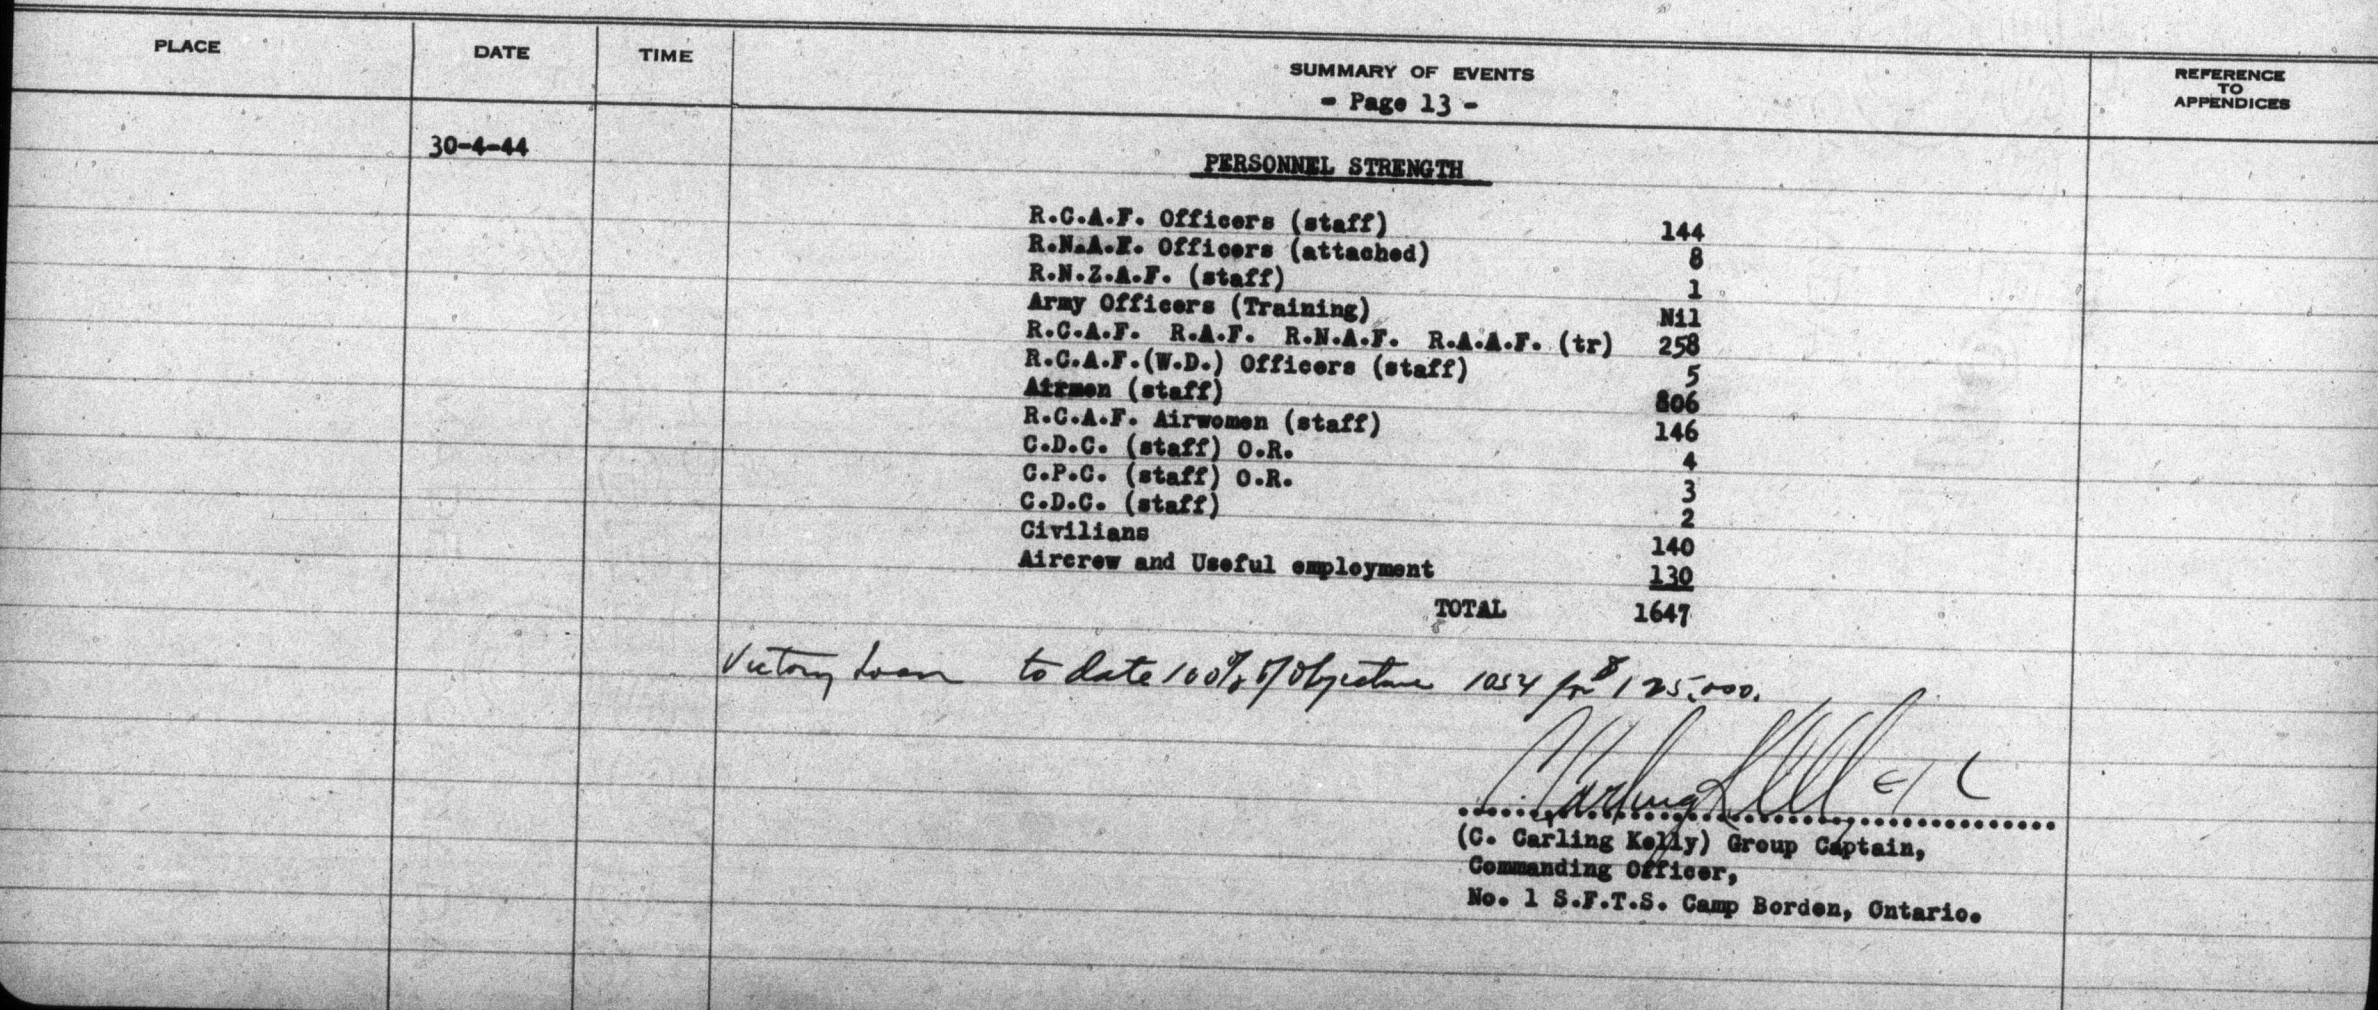 PLACE DATE TIME SUMMARY OF EVENTS REFERENCE TO APPENDICES
- Page 13 -
30-4-44
PERSONNEL STRENGTH
R.C.A.F. Officers (staff) 144
R.N.A.F. Officers (attached) 8
R.N.Z.A.F. (staff) 1
Army Officers (Training) Nil
R.C.A.F. R.A.F. R.N.A.F. R.A.A.F. (tr) 258
R.C.A.F.(W.D.) Officers (staff) 5
Airmen (staff) 806
R.C.A.F. Airwomen (staff) 146
C.D.C. (staff) O.R. 4
C.P.C. (staff) O.R. 3
C.D.C. (staff) 2
Civilians 140
Aircrew and Useful employment 130
TOTAL 1647
Victory Loan to date 100% of Objective for $125,000.
(C. Carling Kelly) Group Captain,
Commanding Officer,
No. 1 S.F.T.S. Camp Borden, Ontario.